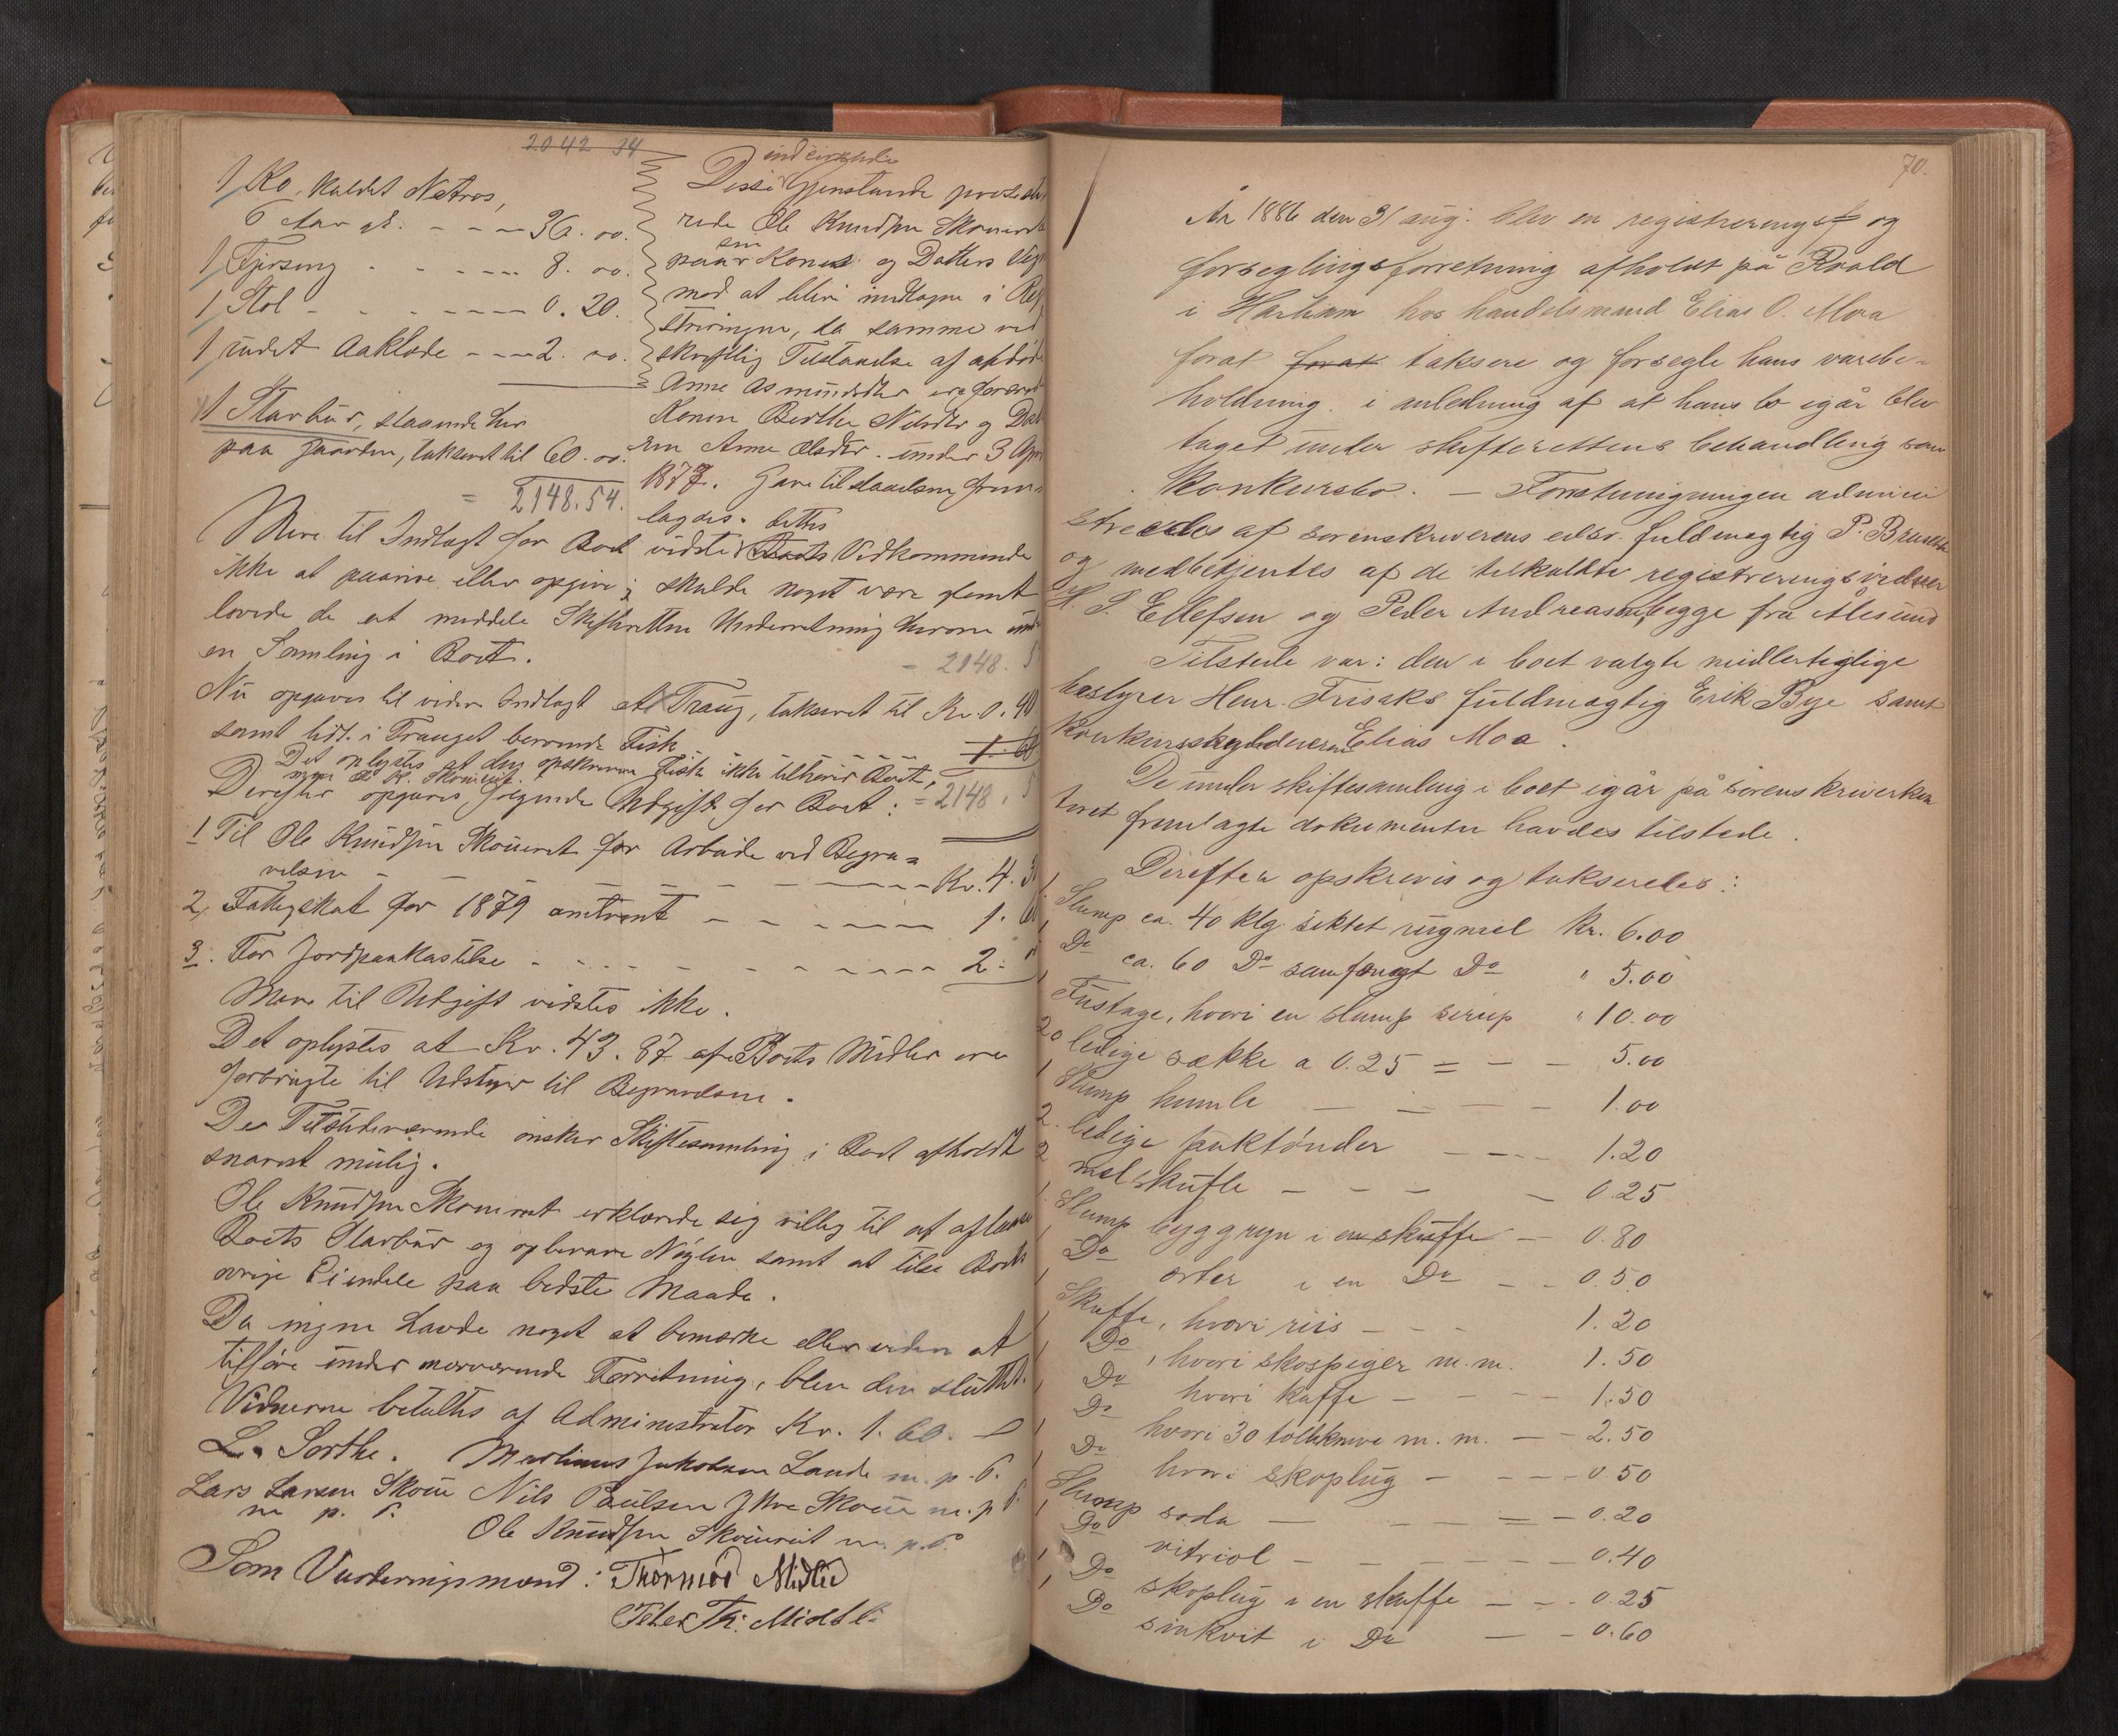 2042 34
1 Ko, kaldet Netros,
6 Aar gl. - - - 36. 00.
1 Gjorsing - - - - 8. 00.
1 Stol - - - - - 0. 20.
1 Aaklæde - - - 2. 00.
1 Starbur, staaende her
paa Gaarden, taxeret til 60. 00.
= 2148.54.
indeigende
Disse Gjenstande
rede Ole Knudsen
sin
paa Kones og Datters
mod at blive indtagne i
streringen, da samme ved
skriftlig Tilstaaelse af
Anne Asmundsdtr ere
Konen Berthe Nilsdtr og
Anne Olsdtr. under 3
1877. Gavetilstaaelsen frem-
lagdes. dettes
Mere til Indtægt for Boet vidste Boets Vedkommende
ikke at paavise eller opgive; skulde noget være glemt
lovede de at meddele Skifteretten Underretning herom
en Samling i Boet.
= 2148. 5
Nu opgaves til videre Indtægt et Traug, taxeret til Kr. 0. 40
samt lidt i Trauget berorende Fisk - - - - 1. 60
Det oplystes at den opskrevne Fisk ikke tilhører Boet,
Derefter opgaves følgende Udgift for Boet: = 2148, 5
1 Til Ole Knudsen Skouvret for Arbeide ved Begra=
velsen - - - - - - Kr. 4. 3
2, Fattigskat for 1879 omtrent - - - - 1. 6
3. For Jordpaakastelse - - - - - 2.
Mere til Udgift vidstes ikke.
Det oplystes at Kr. 43. 87 af Boets Midler ere
forbrugte til Udstyr til Begravelsen.
De Tilstedeværende ønsker Skiftesamling i Boet afholdt
snarest mulig.
Ole Knudsen Skouvret erklærede sig villig til at
Boets Starbur og opbevare Nøglen samt at tilse Boets
øvrige Eiendele paa bedste Maade.
Da ingen havde noget at bemærke eller videre at
tilføre under nærværende Forretning, blev den sluttet.
Vidnerne betaltes af Administrator Kr. 1. 60.
L. Sorthe. Martinus Jakobsen Lande m. p. P.
Lars Larsen Skoue Nils Paulsen Skoue m. p. P.
m p. P. Ole Knudsen Skouvret m. p. P.
Som Vurderingsmænd: Thormod Midtlie
Peter Th: Midtli
70.
År 1886 den 31 aug: blev en registrerings og
forseglingsforretning afholdt på Roald
i Harham hos handelsmand Elias O. Moa
forat forat taksere og forsegle hans varebe=
holdning i anledning af at hans bo igår blev
taget under skifterettens behandling som
konkursbo. — Forretningen admini
streredes af sorenskriverens edsv. fuldmægtig P.
og medbetjentes af de tilkaldte registreringsvidner
S. Ellefsen og Peder Andreassen, begge fra Ålesund
Tilstede var: den i boet valgte midlertidige
bestyrer Henr. Frisaks fuldmægtig Erik Bye samt
konkursskyldneren Elias Moa.
De under skiftesamling i boet igår på sorenskriverkon
toret fremlagte dokumenter havdes tilstede.
Derefter opskreves og takseredes:
1 Slump ca. 40 klg. siktet rugmel Kr. 6.00
1 Do ca. 60 Do samfængt Do " 5.00
1 Fustage, hvori en slump sirup " 10.00
20 ledige sække a 0.25 = - - 5.00
1 Slump humle - - - - 1.00
2 ledige fuktønder - - - 1.20
2 melskufle - - - - 0.25
1 Slump byggryn i en skuffe - 0.80
1 Do erter i en Do - - 0.50
1 Skuffe, hvori riis - - - 1.20
1 Do, hvori skospiger m.m. 1.50
1 Do hvori kaffe - - - 1.50
1 Do hvori 30 tolleknive m.m. - - 2.50
1 Do hvori skoplug - - - 0.50
1 Slump soda - - - - 0.20
1 Do vitriol - - - - - 0.40
1 Do skoplug i en skuffe - - - 0.25
1 Do sinkvit i Do - - 0.60